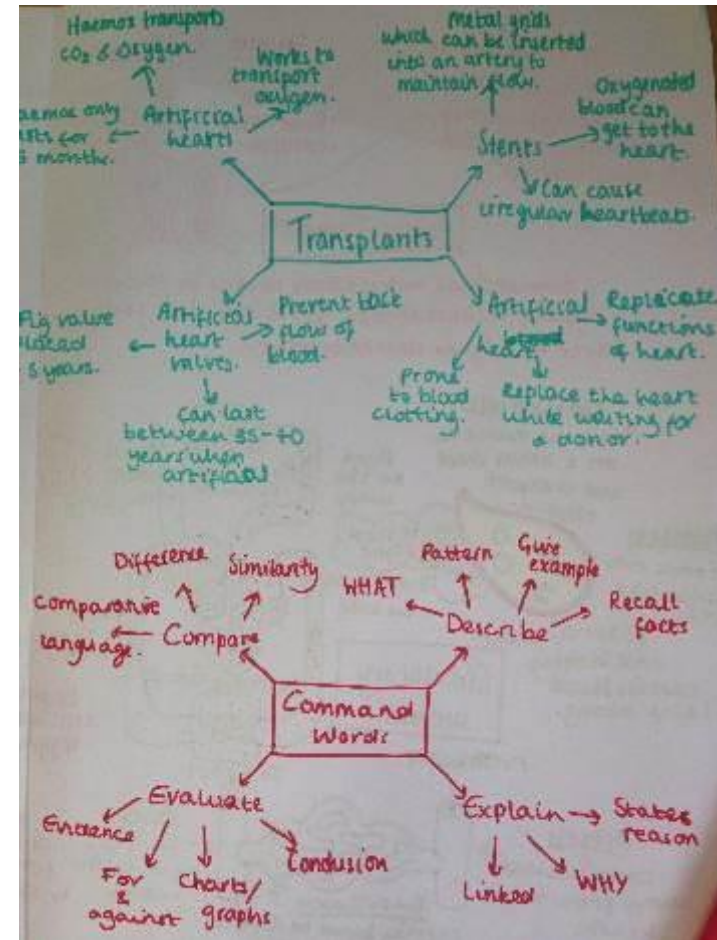 Haemos transports
CO2 & Oxygen.
Works to
transport
oxygen.
Artificial
hearts
aemos only
sts for
months.
Metal grids
which can be inserted
into an artery to
maintain flow.
Oxygenated
blood can
get to the
heart.
Stents
Can cause
irregular heartbeats.
Transplants
Artificial
heart
valves.
Prevent back
flow of
blood.
Pig valve
laced
5 years.
Can last
between 35-40
years when
artificial
Artificial
heart
Replicate
functions
of heart.
Prone
to blood
clotting.
Replace the heart
while waiting for
a donor.
Difference
Similarity
Comparative
language.
Compare
Pattern
Give
example
WHAT
Describe
Recall
facts
Command
Words
Evaluate
Evidence
For
&
against
Charts/
graphs
Conclusion
Explain
States
reason
Linked
WHY